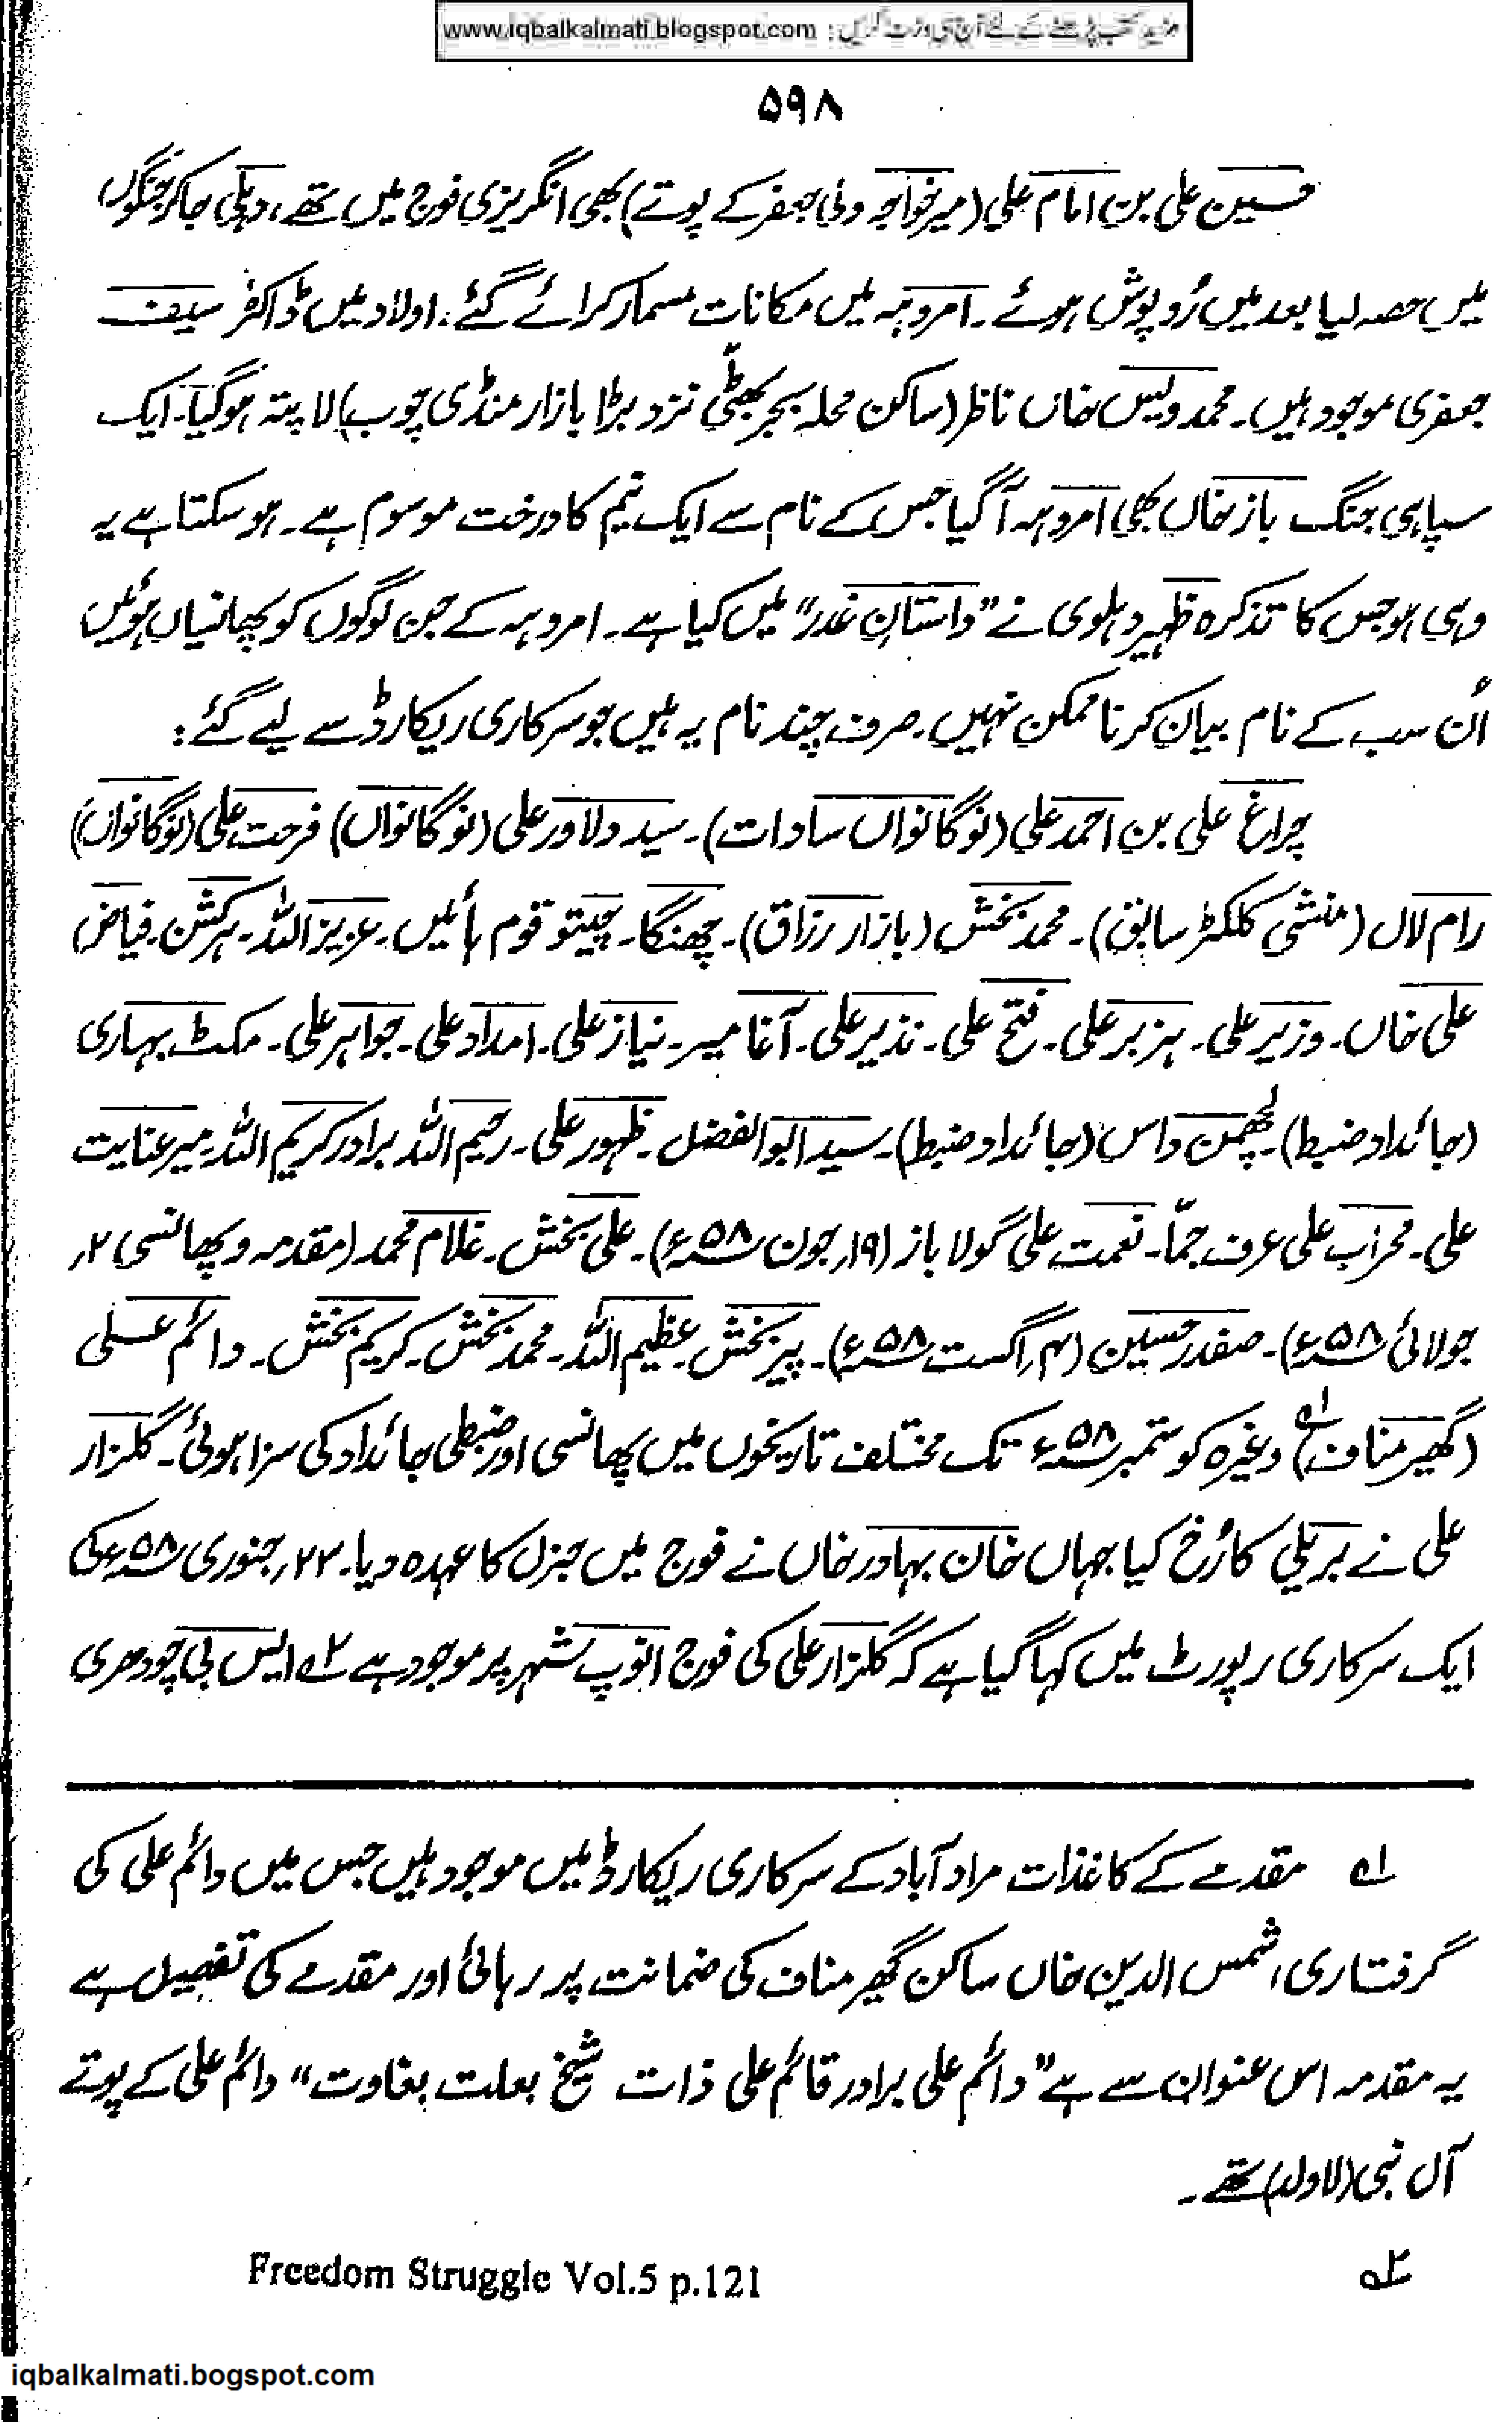 www.iqbalkalmati.blogspot.com : مزید کتب پڑھنے کے لئے آج ہی وزٹ کریں
۵۹۸
حسین علی بن امام علی (میر خواجہ ولی جعفر کے پوتے) بھی انگریزی فوج میں تھے، دہلی جا کر جنگوں
میں حصہ لیا بعد میں رُوپوش ہوئے ۔ امروہہ میں مکانات مسمار کرائے گئے ، اولاد میں ڈاکٹر سیف
جعفری موجود ہیں ۔ محمد ویس خاں ناظر (ساکن محلہ بجر بھٹّی نزد بڑا بازار منڈی چوب) لا پتہ ہو گیا ۔ ایک
سپاہی جنگ باز خاں بھی امروہہ آگیا جس کے نام سے ایک نیم کا درخت موسوم ہے ۔ ہو سکتا ہے یہ
وہی ہو جس کا تذکرہ ظہیر دہلوی نے ”داستانِ غدر“ میں کیا ہے ۔ امروہہ کے جن لوگوں کو پھانسیاں ہوئیں
اُن سب کے نام بیان کرنا ممکن نہیں ۔ صرف چند نام یہ ہیں جو سرکاری ریکارڈ سے لیے گئے :
چراغ علی بن احمد علی (نوگانواں سادات) ۔ سید دلاور علی (نوگانواں) فرحت علی (نوگانواں)
رام لال (منشی کلکٹر سابق) ۔ محمد بخش (بازار رزاق) ۔ چھنگا ۔ چیتو قوم بائیں ۔ عزیز اللہ ۔ ہرکشن ۔ فیاض
علی خاں ۔ وزیر علی ۔ ہزبر علی ۔ فتح علی ۔ نذیر علی ۔ آغا میر ۔ نیاز علی ۔ امداد علی ۔ جواہر علی ۔ مکٹ بہاری
(جائداد ضبط) ۔ لچھمن داس (جائداد ضبط) ۔ سید ابوالفضل ۔ ظہور علی ۔ رحیم اللہ برادر کریم اللہ ۔ میر عنایت
علی ۔ محراب علی عرف جمّا ۔ نعمت علی گولا باز (۱۹؍ جون ۵۸ء) ۔ علی بخش ۔ غلام محمد (مقدمہ و پھانسی ۲؍
جولائی ۵۸ء) ۔ صفدر حسین (۴؍ اگست ۵۸ء) ۔ پیر بخش ۔ عظیم اللہ ۔ محمد بخش ۔ کریم بخش ۔ دائم علی
(گھیر مناف) ۱؎ وغیرہ کو ستمبر ۵۸ء تک مختلف تاریخوں میں پھانسی اور ضبطی جائداد کی سزا ہوئی ۔ گلزار
علی نے بریلی کا رُخ کیا جہاں خان بہادر خاں نے فوج میں جنرل کا عہدہ دیا ۔ ۲۲؍ جنوری ۵۸ء کی
ایک سرکاری رپورٹ میں کہا گیا ہے کہ گلزار علی کی فوج انوپ شہر پر موجود ہے ۲؎ ایس بی چودھری
۱؎ مقدمے کے کاغذات مرادآباد کے سرکاری ریکارڈ میں موجود ہیں جس میں دائم علی کی
گرفتاری، شمس الدین خاں ساکن گھیر مناف کی ضمانت پر رہائی اور مقدمے کی تفصیل ہے
یہ مقدمہ اس عنوان سے ہے ”دائم علی برادر قائم علی ذات شیخ بعلت بغاوت“ دائم علی کے پوتے
آل نبی (لاولد) تھے ۔
۲؎ Freedom Struggle Vol.5 p.121
iqbalkalmati.bogspot.com